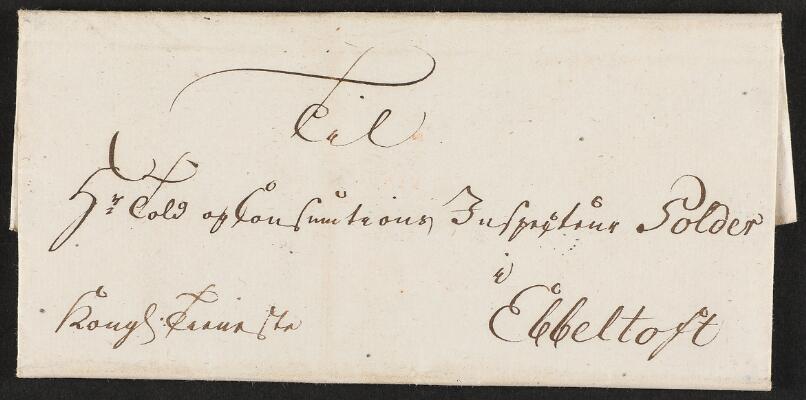 Til
Hr Told og Consumtions Inspecteur Polder
i
Ebbeltoft
Kongl. Tieneste